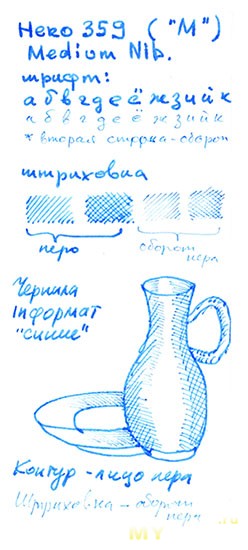 Неко 359 ("M")
Medium Nib.
шрифт:
а б в г д е ё ж з и й к
а б в г д е ё ж з и й к
* вторая строка - оборот
штриховка
перо
оборот
пера
Чернила
Інформат
"синие"
Контур - лицо пера
Штриховка - оборот
пера
MY
.ru